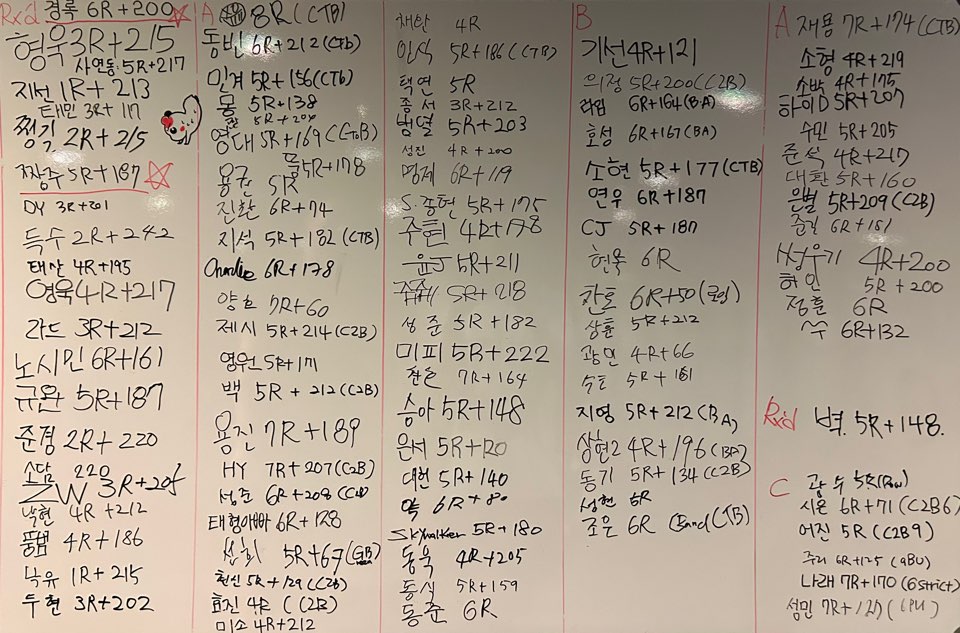 Rx'd 경록 6R+200
형욱 3R+215
사연동: 5R+217
지선 1R+213
태민 3R+117
찡긱 2R+215
짱주 5R+187
DY 3R+201
득수 2R+242
태산 4R+195
영욱 4R+217
라드 3R+212
노시민 6R+161
규완 5R+187
준경 2R+220
소담 220
ZW 3R+205
낙현 4R+212
뚬뱀 4R+186
낙유 1R+215
두현 3R+202
A
8R (CTB)
동빈 6R+212 (CTB)
민겨 5R+156 (CTb)
몽 5R+138
5R+204
영대 5R+169 (CToB)
뚤 5R+178
용권 5R
진환 6R+74
지석 5R+182 (CTB)
Charlie 6R+178
양호 7R+60
제시 5R+214 (C2B)
영원 5R+171
백 5R + 212 (C2B)
용진 7R+189
HY 7R+207 (C2B)
성준 6R+208
태형아빠 6R+128
선희 5R+67
헌신 5R+129 (C2B)
효진 4R (C2B)
미소 4R+212
채탄 4R
인식 5R+186 (CTB)
택연 5R
종서 3R+212
병열 5R+203
성진 4R+200
명제 6R+119
S.종현 5R+175
주원 4R+178
윤J 5R+211
5R+218
성준 5R+182
미피 5R+222
찬호 7R+164
승아 5R+148
은서 5R+120
대헌 5R+140
6R+80
Skywalker 5R+180
동욱 4R+205
동식 5R+159
동준 6R
B
기선 4R+121
의정 5R+200 (C2B)
라임 6R+164 (BA)
효성 6R+167 (BA)
소현 5R+177 (CTB)
연우 6R+187
CJ 5R+187
현욱 6R
찬호 6R+50
상훈 5R+212
광민 4R+66
숙호 5R+161
지영 5R+212 (BA)
상현2 4R+196 (BA)
동기 5R+134 (C2B)
성현 6R
조은 6R (Band CTB)
A
재용 7R+174 (CTB)
소형 4R+219
소박 4R+175
하이D 5R+207
수민 5R+205
준석 4R+217
대환 5R+160
은별 5R+209 (C2B)
준길 6R+181
싸우기 4R+200
허인 5R+200
정훈 6R
6R+132
Rx'd 벽. 5R+148.
C
광수 5R (Row)
시온 6R+71 (C2B6)
어진 5R (C2B9)
주리 6R+125 (9BU)
나래 7R+170 (6strict)
성민 7R+127